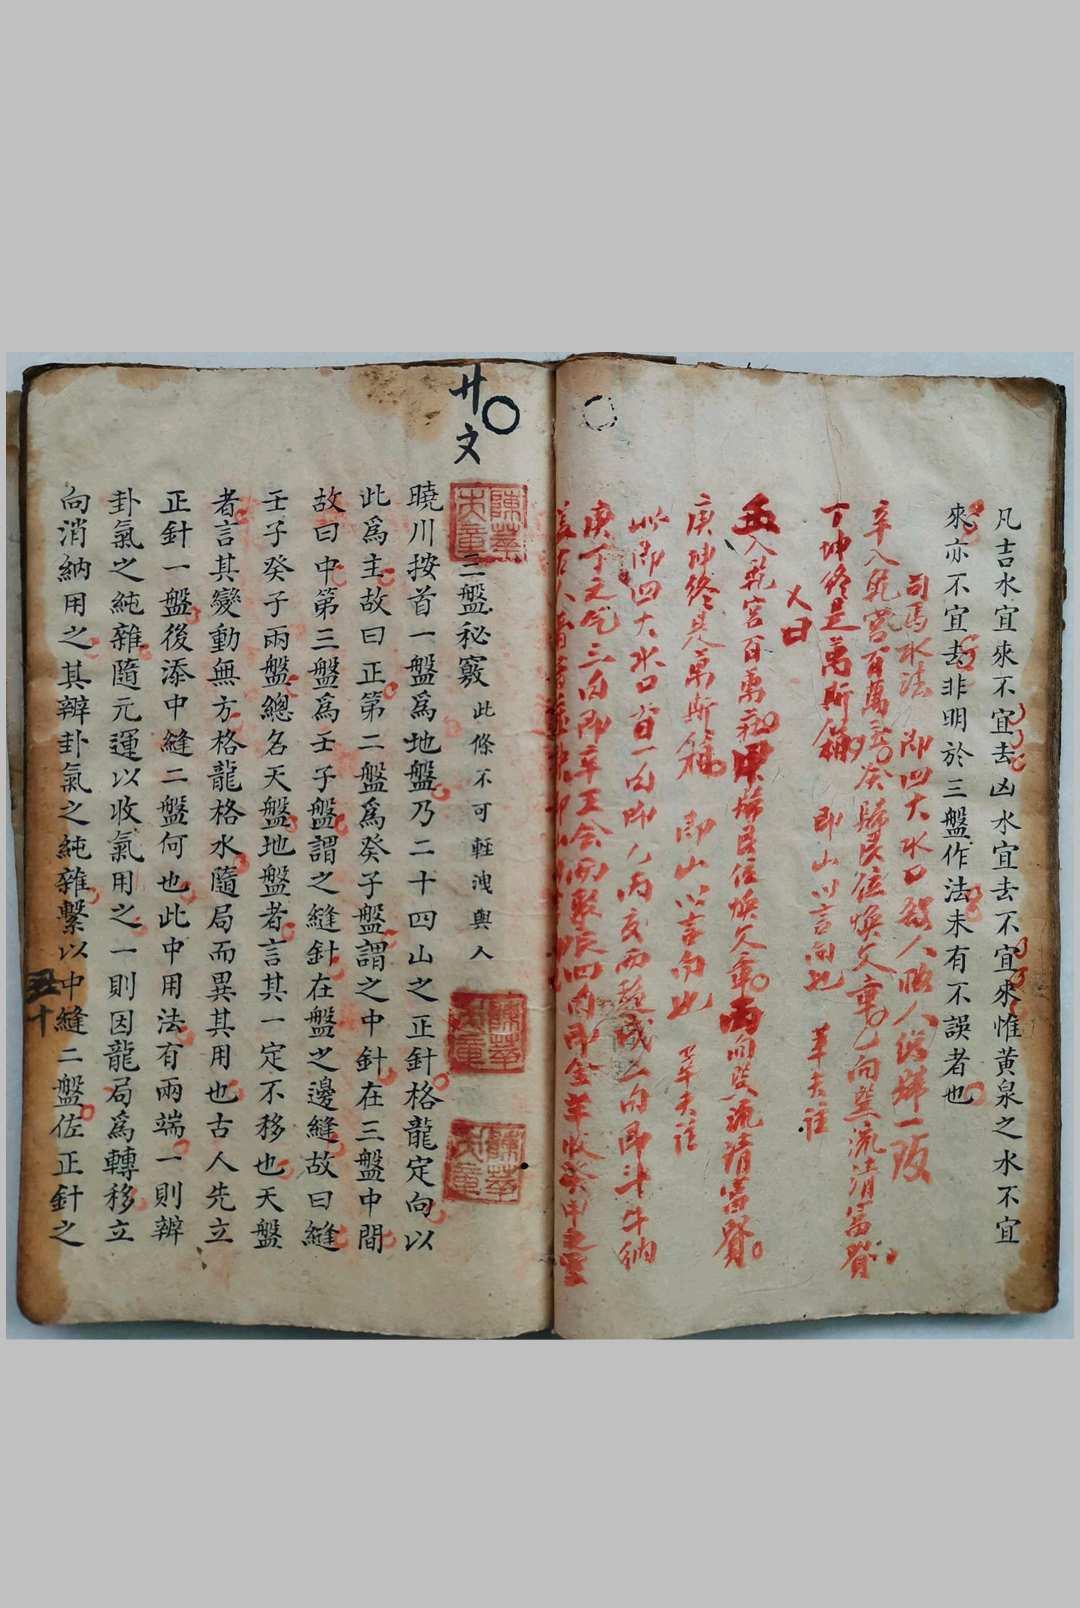 凡吉水宜來不宜去凶水宜去不宜來惟黄泉之水不宜
來亦不宜去非明於三盤作法未有不誤者也
司馬水法 即四大水口
辛入乾宮百萬庄癸歸艮位煥文章乙向巽流清富貴
丁坤終是萬斯箱 即山以言向也 草夫注
又曰
壬入乾宮百萬 甲歸艮位煥文章丙向巽流清富貴
庚坤終是萬斯箱 即山以言向也 草夫注
此即四大水口首一句即乙丙交而趨戌二句即斗牛納
庚丁之气三句即辛壬会而聚辰四句即金羊收癸甲之靈
廿文
三盤秘竅 此條不可輕洩與人
曉川按首一盤爲地盤乃二十四山之正針格龍定向以
此爲主故曰正第二盤爲癸子盤謂之中針在三盤中間
故曰中第三盤爲壬子盤謂之縫針在盤之邊縫故曰縫
壬子癸子兩盤總名天盤地盤者言其一定不移也天盤
者言其變動無方格龍格水隨局而異其用也古人先立
正針一盤後添中縫二盤何也此中用法有兩端一則辨
卦氣之純雜隨元運以收氣用之一則因龍局爲轉移立
向消納用之其辨卦氣之純雜繫以中縫二盤佐正針之
五十